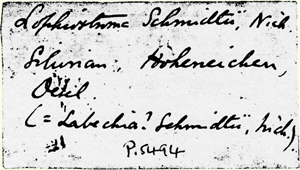 Lophiostroma Schmidtii, Nich.
Silurian, Hoheneichen,
Oesel
(= "Labechia? Schmidtii, Nich.)
P.5494